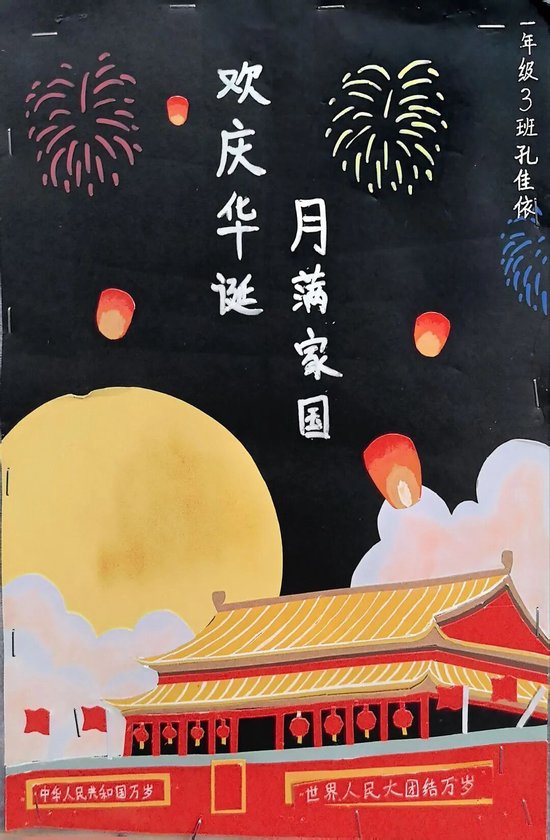 一年级3班孔佳依
欢庆华诞
月满家国
中华人民共和国万岁
世界人民大团结万岁